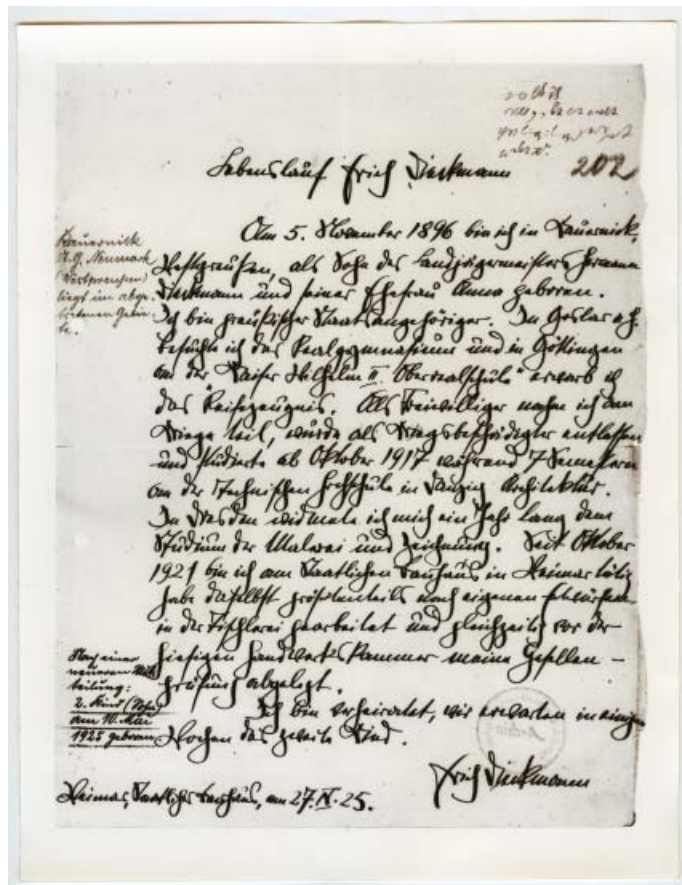 202
Lebenslauf Erich Dieckmann
Am 5. November 1896 bin ich in Kauernick,
Westpreußen, als Sohn des Landjägermeisters Hermann
Dieckmann und seiner Ehefrau Anna geboren.
Ich bin preußischer Staatsangehöriger. In Goslar a. H.
besuchte ich das Realgymnasium und in Göttingen
an der "Kaiser Wilhelm II. Oberrealschule" erwarb ich
das Reifezeugnis. Als Freiwilliger nahm ich am
Kriege teil, wurde als Kriegsbeschädigter entlassen
und studierte ab Oktober 1917 während 7 Semestern
an der Technischen Hochschule in Danzig Architektur.
In Dresden widmete ich mich ein Jahr lang dem
Studium der Malerei und Zeichnung. Seit Oktober
1921 bin ich am Staatlichen Bauhaus in Weimar tätig
habe daselbst größtenteils nach eigenen Entwürfen
in der Tischlerei gearbeitet und gleichzeitig vor der
hiesigen Handwerkskammer meine Gesellen-
prüfung abgelegt.
Ich bin verheiratet, wir erwarten in einigen
Wochen das zweite Kind.
Erich Dieckmann
Weimar, Staatliches Bauhaus, am 27. IV. 25.
Kauernick
Neumark
(Westpreussen)
liegt im abge-
tretenen Gebie-
te.
Nach einer
neueren Mit-
teilung:
2. Kind (Sohn)
am 10. Mai
1925 geboren